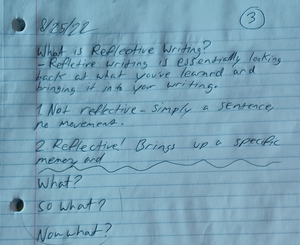 3
8/25/22
What is Reflective Writing?
- Refletive writing is essentially looking
back at what you've learned and
bringing it into your writing.
1 Not reflective - simply a sentence
no movement.
2 Reflective! Brings up a specific
memory and
What?
So what?
Now what?